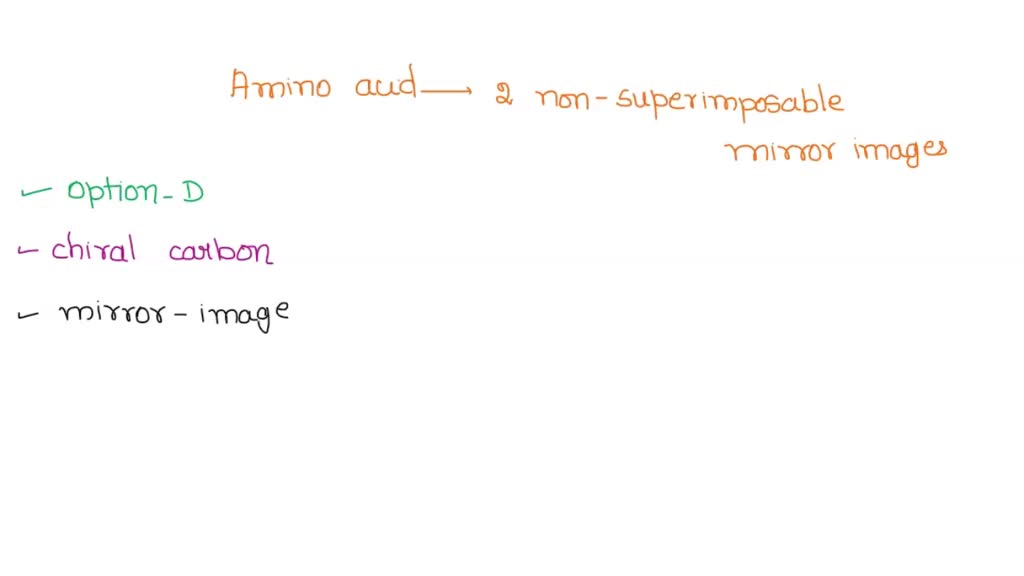 Amino acid → 2 non-superimposable
mirror images
✓ Option-D
✓ chiral carbon
✓ mirror-image